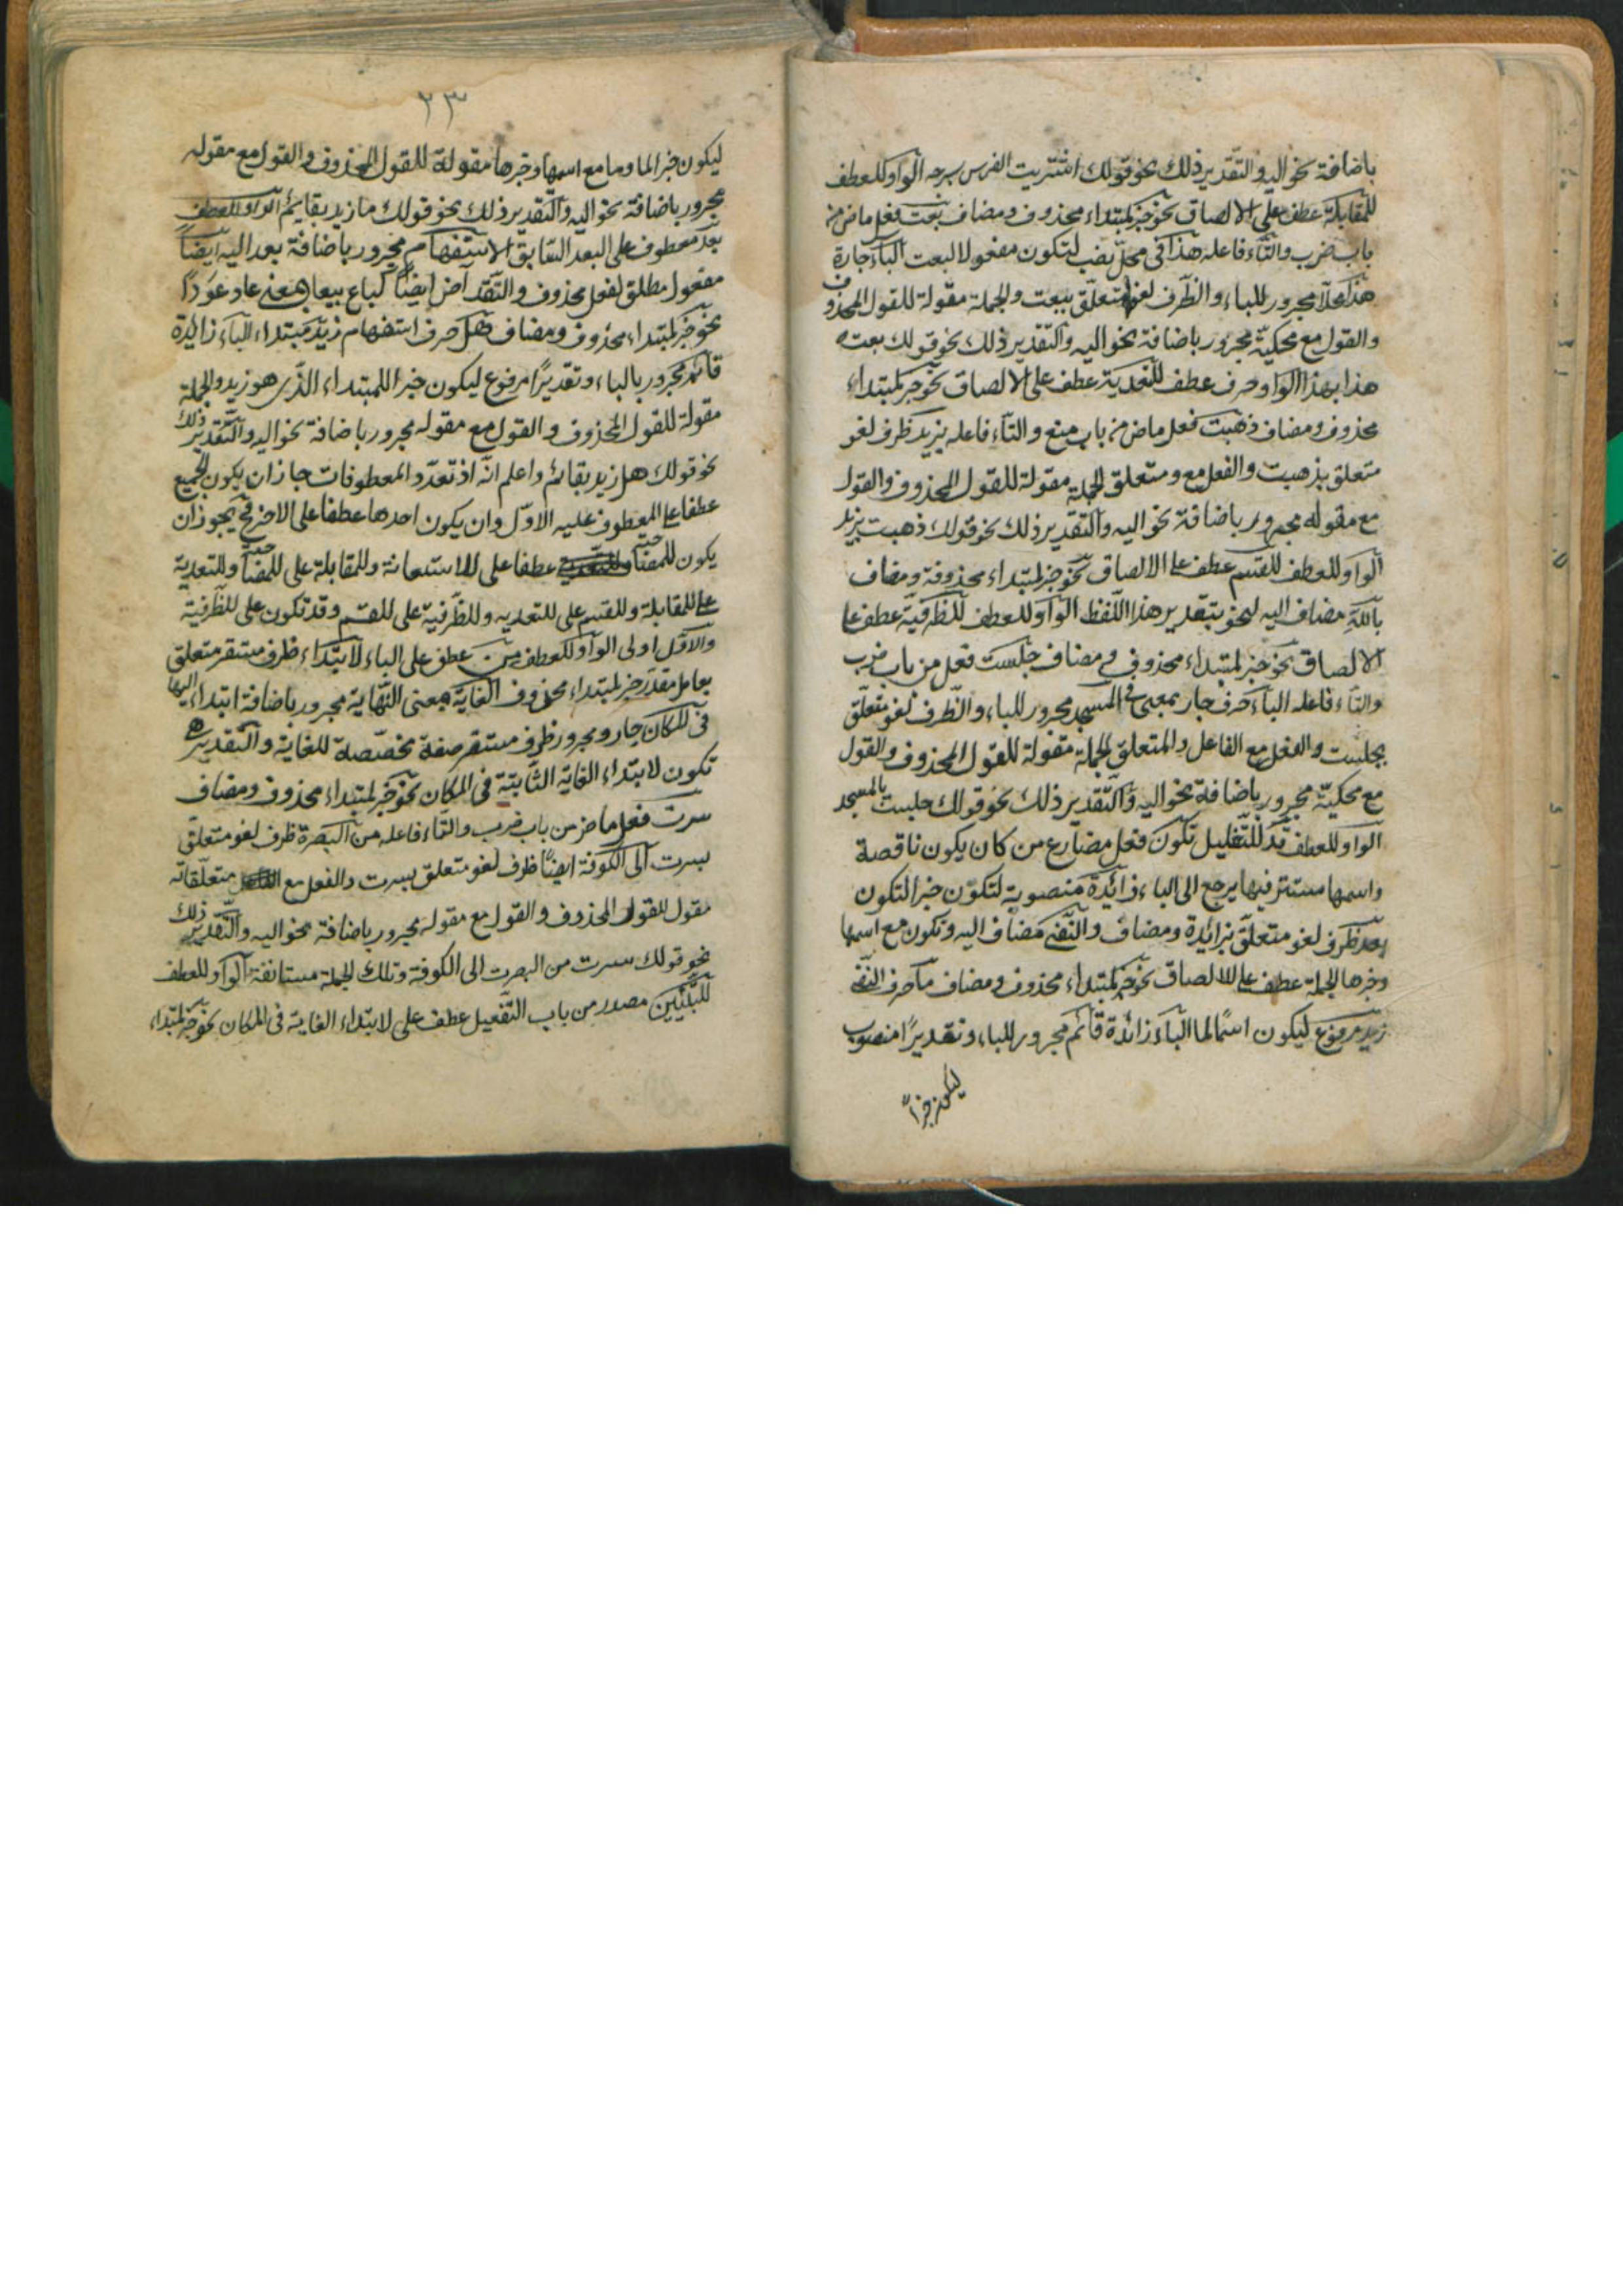 باضافة نحو اليه والتقدير ذلك نحو قولك اشتريت الفرس بسرجه الواو للعطف
للمقابلة عطف على الالصاق نحو خبر لمبتداء محذوف ومضاف بعت فعل ماض من
باب ضرب والتاء فاعله هذا في محل نصب لتكون مفعولا لبعت الباء جارة
هذا محلا مجرور للباء والظرف لغو متعلق ببعت والجملة مقولة للقول المحذوف
والقول مع محكية مجرور باضافة نحو اليه والتقدير ذلك نحو قولك بعت
هذا بهذا الواو حرف عطف للتعدية عطف على الالصاق نحو خبر لمبتداء
محذوف ومضاف ذهبت فعل ماض من باب منع والتاء فاعله بزيد ظرف لغو
متعلق بذهبت والفعل مع ومتعلق الجملة مقولة للقول المحذوف والقول
مع مقوله مجرور باضافة نحو اليه والتقدير ذلك نحو قولك ذهبت بزيد
الواو للعطف للقسم عطف على الالصاق نحو خبر لمبتداء محذوفة ومضاف
بالله مضاف اليه لنحو بتقدير هذا اللفظ الواو للعطف للظرفية عطف على
الالصاق نحو خبر لمبتداء محذوف ومضاف جلست فعل من باب ضرب
والتاء فاعله الباء حرف جار بمعنى في المسجد مجرور للباء والظرف لغو متعلق
بجلست والفعل مع الفاعل والمتعلق الجملة مقولة للقول المحذوف والقول
مع محكية مجرور باضافة نحو اليه والتقدير ذلك نحو قولك جلست بالمسجد
الواو للعطف قد للتقليل تكون فعل مضارع من كان يكون ناقصة
واسمها مستتر فيها يرجع الى الباء زائدة منصوبة لتكون خبر التكون
بعد ظرف لغو متعلق بزائدة ومضاف والنفي مضاف اليه وتكون مع اسمها
وخبرها الجملة عطف على للالصاق نحو خبر لمبتداء محذوف ومضاف ما حرف النفي
زيد مرفوع ليكون اسما لما الباء زائدة قائم مجرور للباء وتقديرا منصوب
ليكون خبرا
٢٣
ليكون خبر الما وما مع اسمها وخبرها مقولة للقول المحذوف والقول مع مقوله
مجرور باضافة نحو اليه والتقدير ذلك نحو قولك ما زيد بقائم الواو للعطف
بعد معطوف على البعد السابق الاستفهام مجرور باضافة بعد اليه ايضا
مفعول مطلق لفعل محذوف والتقد آض ايضا كباع بيعا بمعنى عاد عودا
نحو خبر لمبتداء محذوف ومضاف هل حرف استفهام زيد مبتداء الباء زائدة
قائم مجرور بالباء وتقديرا مرفوع ليكون خبرا للمبتداء الذي هو زيد والجملة
مقولة للقول المحذوف والقول مع مقوله مجرور باضافة نحو اليه والتقدير ذلك
نحو قولك هل زيد بقائم واعلم انه اذ تعدد المعطوفات جاز ان يكون الجميع
عطفا على المعطوف عليه الاول وان يكون احدها عطفا على الاخر فح يجوز ان
يكون للمصاحبة عطفا على للاستعانة وللمقابلة على للمصاحبة وللتعدية
على للمقابلة وللقسم على للتعديه وللظرفية على للقسم وقد تكون على للظرفية
والاول اولى الواو للعطف من عطف على الباء لابتداء ظرف مستقر متعلق
بعامل مقدر خبر لمبتداء محذوف الغاية بمعنى النهاية مجرور باضافة ابتداء اليها
في المكان جار ومجرور ظرف مستقر صفة مخصصة للغاية والتقدير هي
تكون لابتداء الغاية الثابتة في المكان نحو خبر لمبتداء محذوف ومضاف
سرت فعل ماض من باب ضرب والتاء فاعله من البصرة ظرف لغو متعلق
بسرت الى الكوفة ايضا ظرف لغو متعلق بسرت والفعل مع متعلقاته
مقول للقول المحذوف والقول مع مقوله مجرور باضافة نحو اليه والتقدير ذلك
نحو قولك سرت من البصرت الى الكوفة وتلك الجملة مستانفة الواو للعطف
للتبيين مصدر من باب التفعيل عطف على لابتداء الغاية في المكان نحو خبر لمبتداء